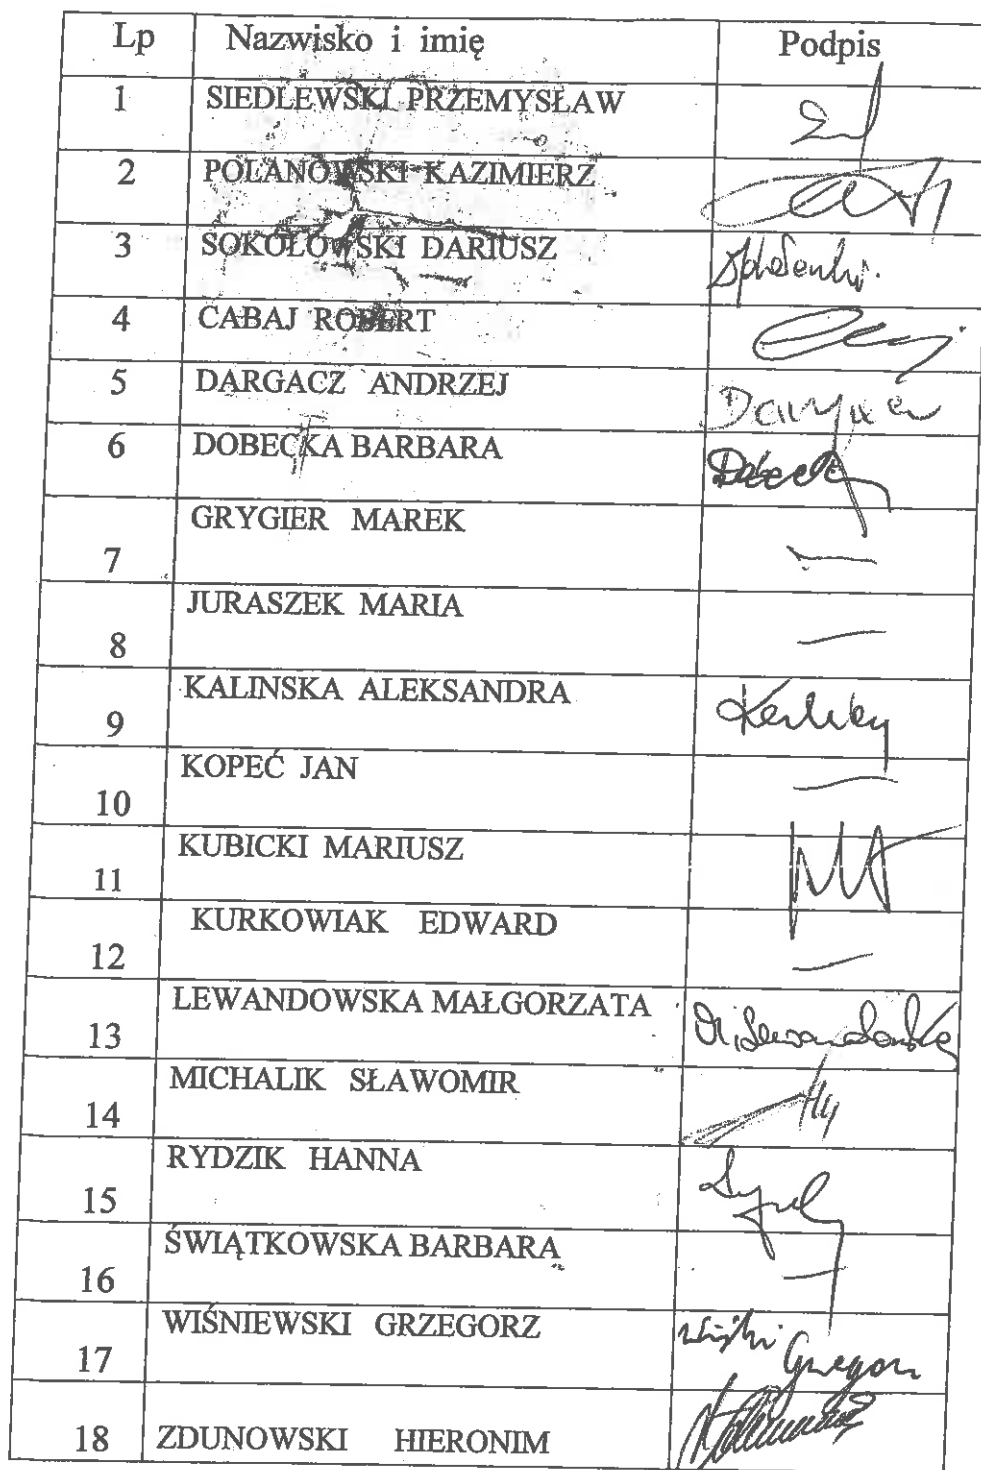 Lp Nazwisko i imię Podpis
1 SIEDLEWSKI PRZEMYSŁAW
2 POLANOWSKI KAZIMIERZ
3 SOKOŁOWSKI DARIUSZ
4 CABAJ ROBERT
5 DARGACZ ANDRZEJ
6 DOBECKA BARBARA
7 GRYGIER MAREK —
8 JURASZEK MARIA —
9 KALINSKA ALEKSANDRA
10 KOPEĆ JAN —
11 KUBICKI MARIUSZ
12 KURKOWIAK EDWARD —
13 LEWANDOWSKA MAŁGORZATA M. Lewandowska
14 MICHALIK SŁAWOMIR
15 RYDZIK HANNA
16 ŚWIĄTKOWSKA BARBARA —
17 WIŚNIEWSKI GRZEGORZ
18 ZDUNOWSKI HIERONIM